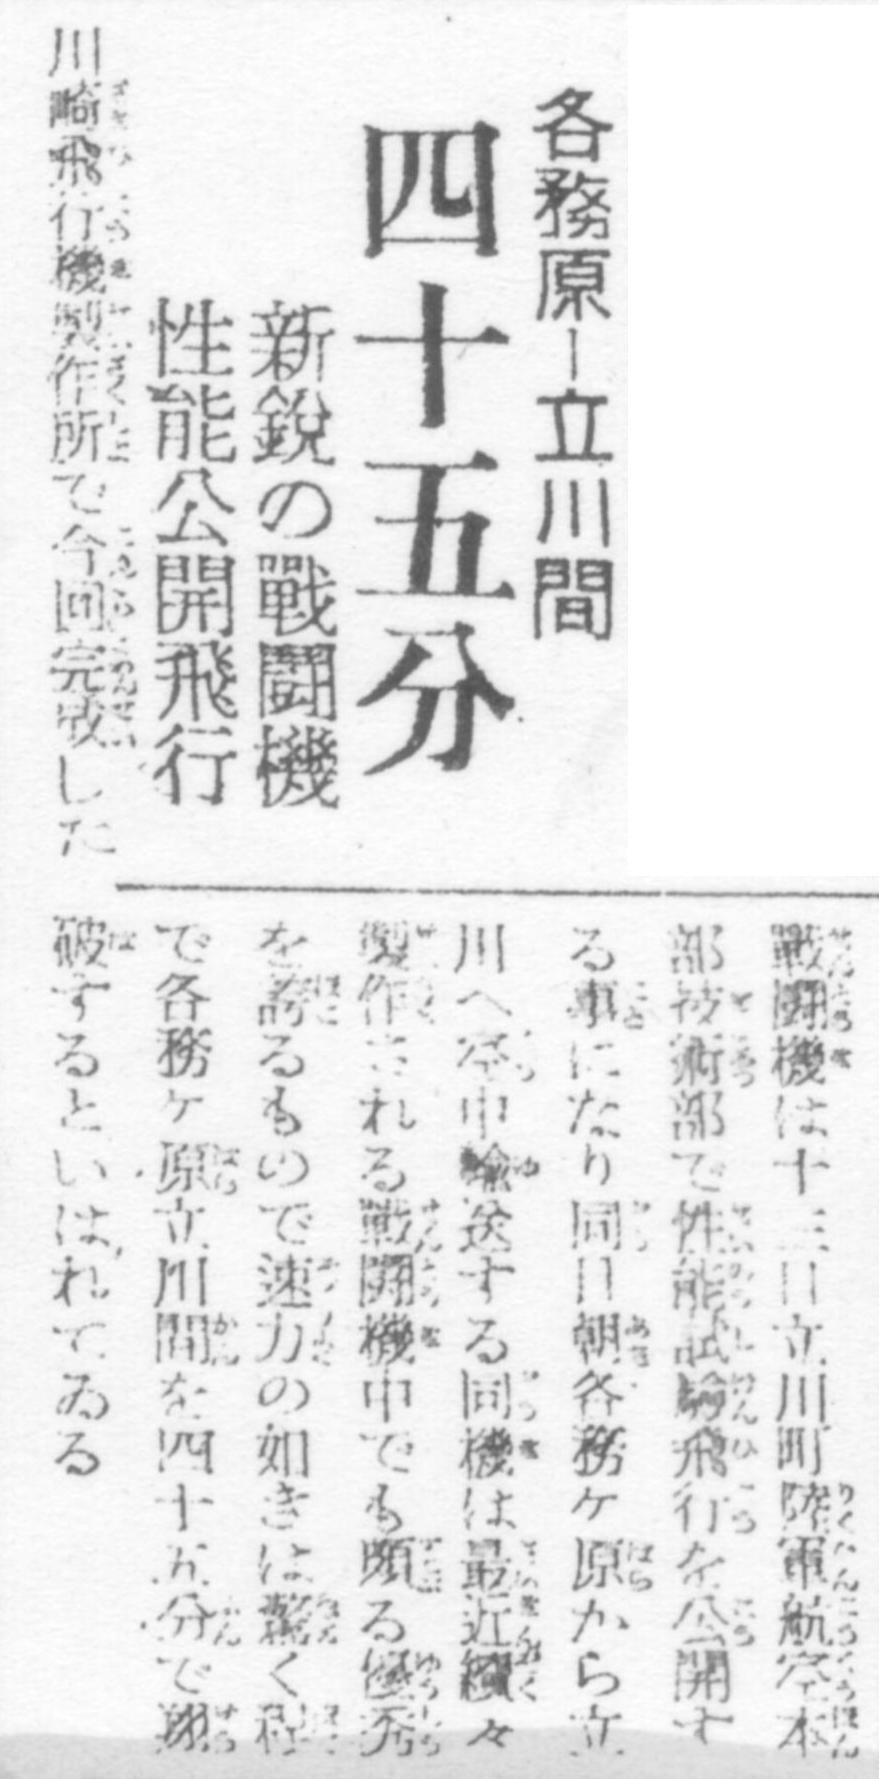 各務原ー立川間
四十五分
新鋭の戰鬪機
性能公開飛行
川崎飛行機製作所で今回完成した
戰鬪機は十三日立川町陸軍航空本
部技術部で性能試驗飛行を公開す
る事になり同日朝各務ケ原から立
川へ空中輸送する同機は最近續々
製作される戰鬪機中でも頗る優秀
を誇るもので速力の如きは驚く程
で各務ケ原立川間を四十五分で翔
破するといはれてゐる